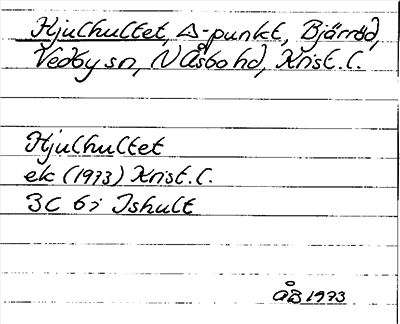 Hjulhultet, Δ-punkt, Bjärröd,
Vedby sn, N Åsbo hd, Krist.l.
Hjulhultet
ek (1973) Krist.l.
3C 6i Ishult
ÅB 1973